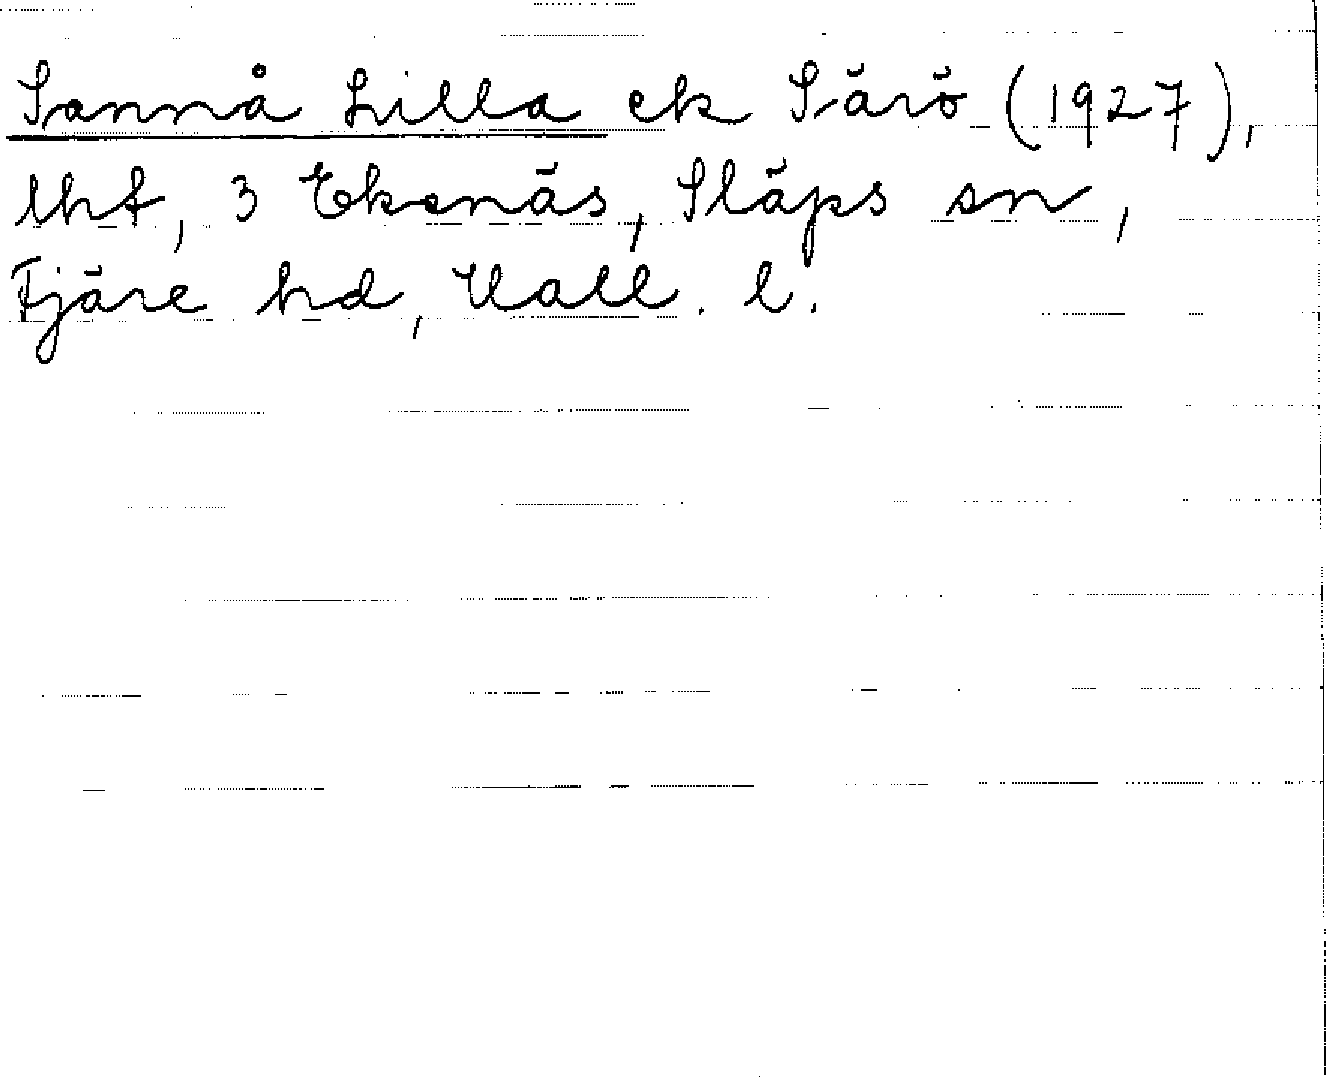 Sannå Lilla ek Särö (1927),
lht, 3 Ekenäs, Släps sn,
Fjäre hd, Hall. l.